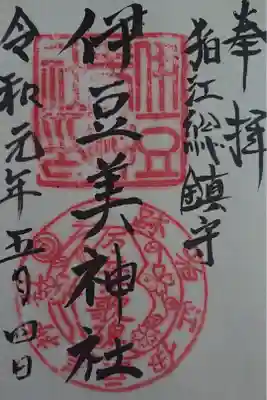 奉拝
狛江総鎮守
伊豆美神社
令和元年五月四日